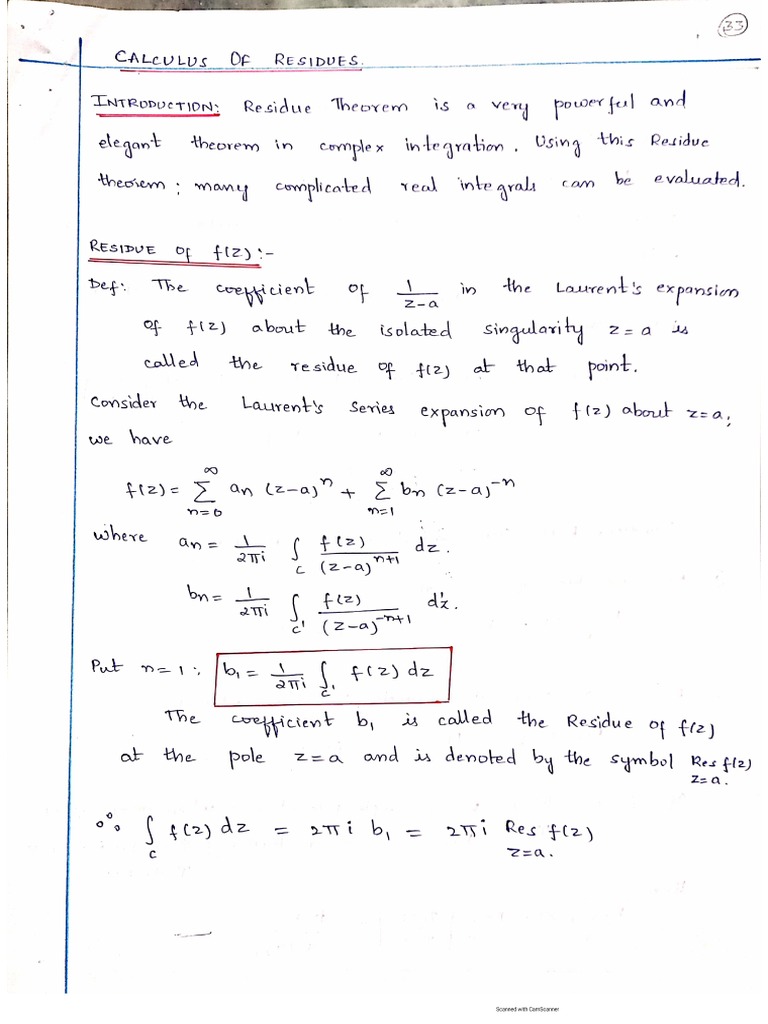 33
CALCULUS OF RESIDUES.
INTRODUCTION: Residue Theorem is a very powerful and
elegant theorem in complex integration. Using this Residue
theorem; many complicated real integrals can be evaluated.
RESIDUE OF f(z):-
Def: The coefficient of 1/(z-a) in the Laurent's expansion
of f(z) about the isolated singularity z=a is
called the residue of f(z) at that point.
Consider the Laurent's series expansion of f(z) about z=a;
we have
f(z) = ∑_{n=0}^{∞} an (z-a)^n + ∑_{n=1}^{∞} bn (z-a)^{-n}
where an = 1/(2πi) ∫_C f(z)/(z-a)^{n+1} dz.
bn = 1/(2πi) ∫_{C'} f(z)/(z-a)^{-n+1} dz.
Put n=1; b₁ = 1/(2πi) ∫_{C'} f(z) dz
The coefficient b₁ is called the Residue of f(z)
at the pole z=a and is denoted by the symbol Res f(z)
z=a.
∴ ∫_C f(z) dz = 2πi b₁ = 2πi Res f(z)
z=a.
Scanned with CamScanner